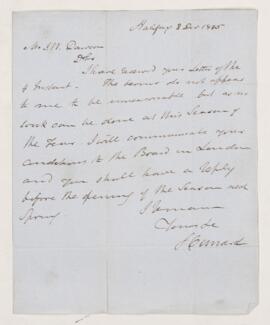 Halifax 8 Dec 1845
Mr J W Dawson
I have received your Letter of the
4 Instant. The terms do not appear
to me to be unreasonable but as no
work can be done at this Season of
the Year. I will communicate your
conditions to the Board in London
and you shall have a reply
before the opening of the Season next
Spring
I remain
Yours
S Cunard